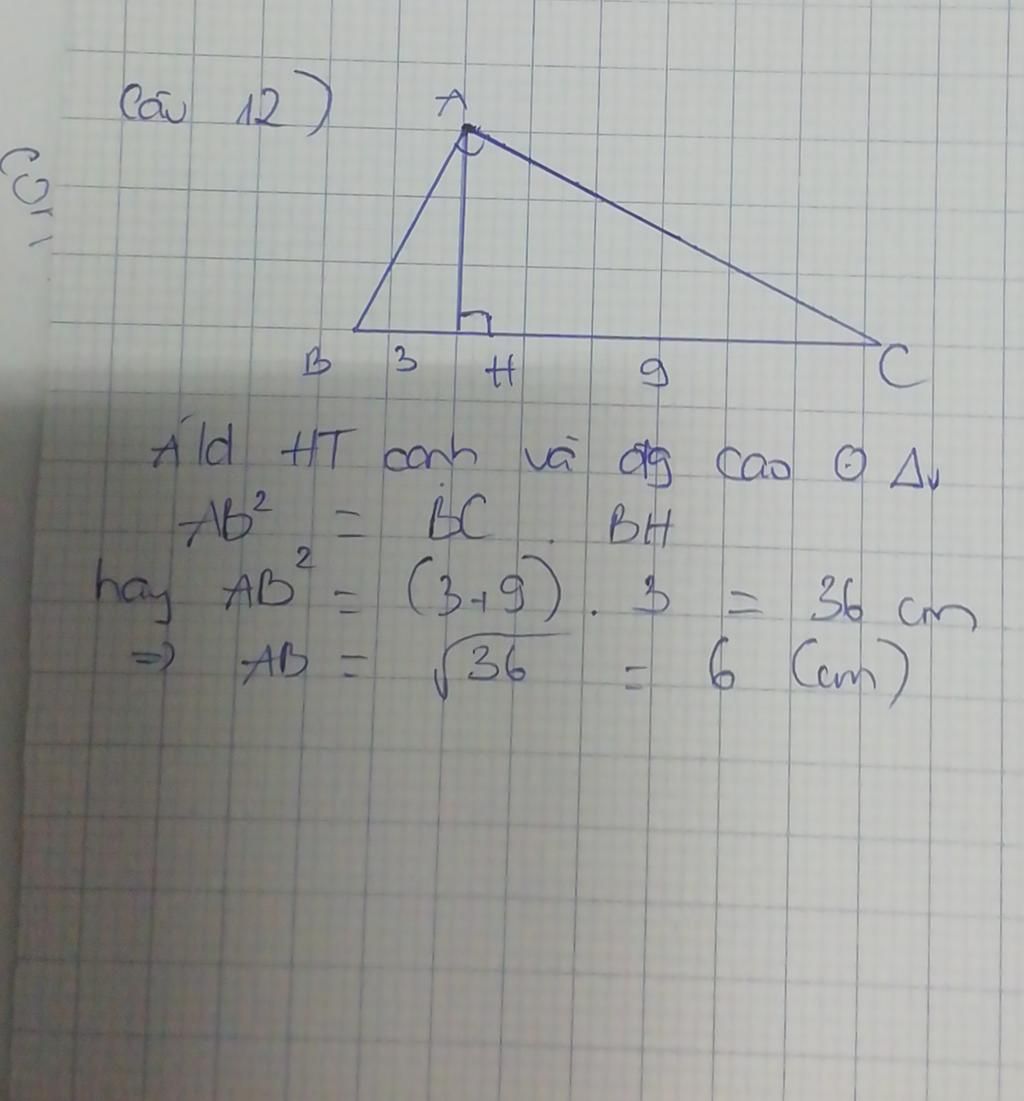 Câu 12)
A
B 3 H 9 C
Áld HT cạnh và đg cao Δv
AB² = BC . BH
hay AB² = (3+9) . 3 = 36 cm
=> AB = √36 = 6 (cm)